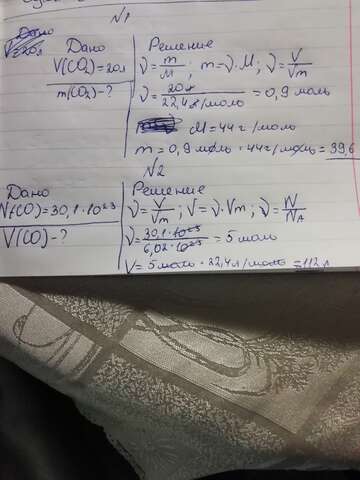 N1
Дано
V=20л
Дано
V(CO2)=20л
m(CO2)-?
Решение
ν=m/M; m=ν·M; ν=V/Vm
ν=20л/22,4л/моль=0,9 моль
M=44г/моль
m=0,9моль·44г/моль=39,6
N2
Дано
N(CO)=30,1·10²³
V(CO)-?
Решение
ν=V/Vm; V=ν·Vm; ν=N/NA
ν=30,1·10²³/6,02·10²³=5 моль
V=5моль·22,4л/моль=112л